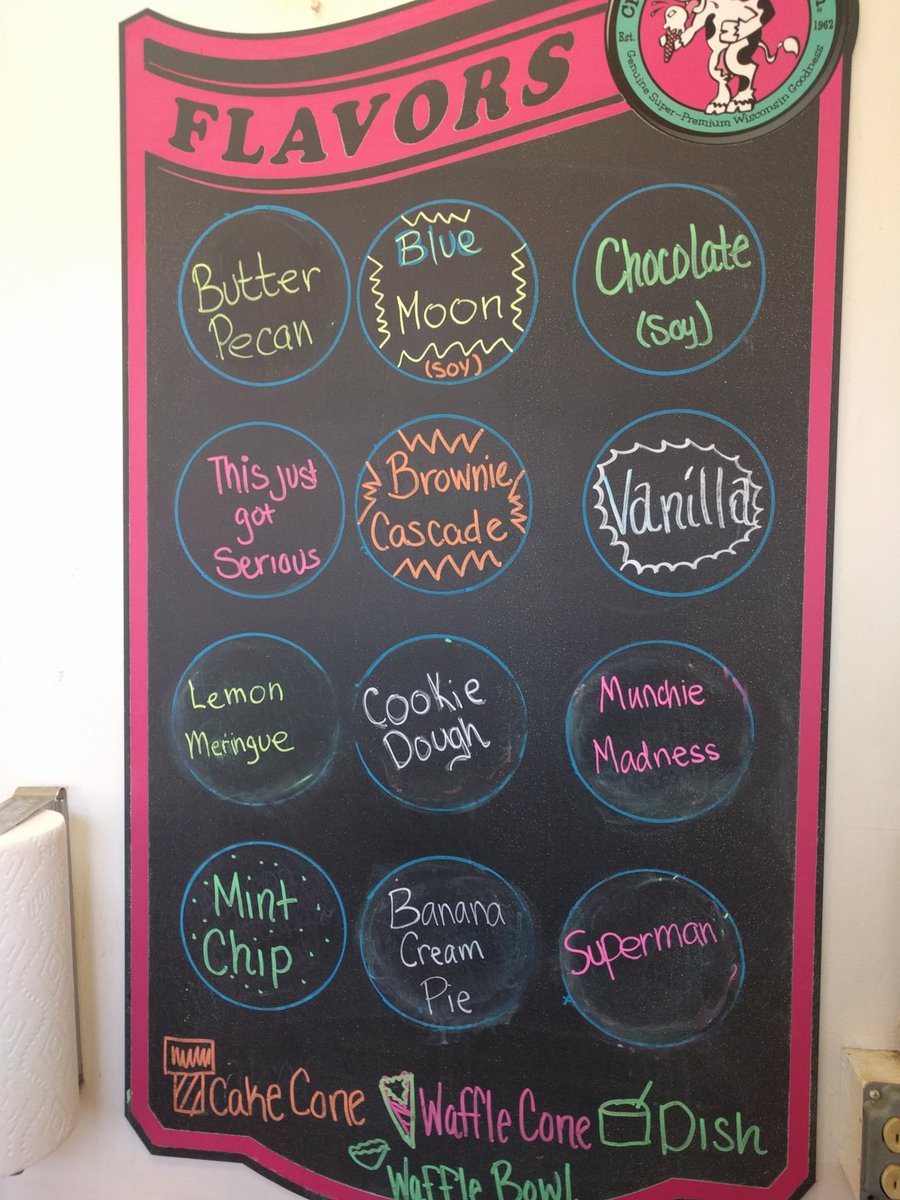 Est. 1962
Genuine Super-Premium Wisconsin Goodness
FLAVORS
Butter
Pecan
Blue
Moon
(soy)
Chocolate
(Soy)
This just
got
Serious
Brownie
Cascade
Vanilla
Lemon
Meringue
Cookie
Dough
Munchie
Madness
Mint
Chip
Banana
Cream
Pie
Superman
Cake Cone
Waffle Cone
Dish
Waffle Bowl